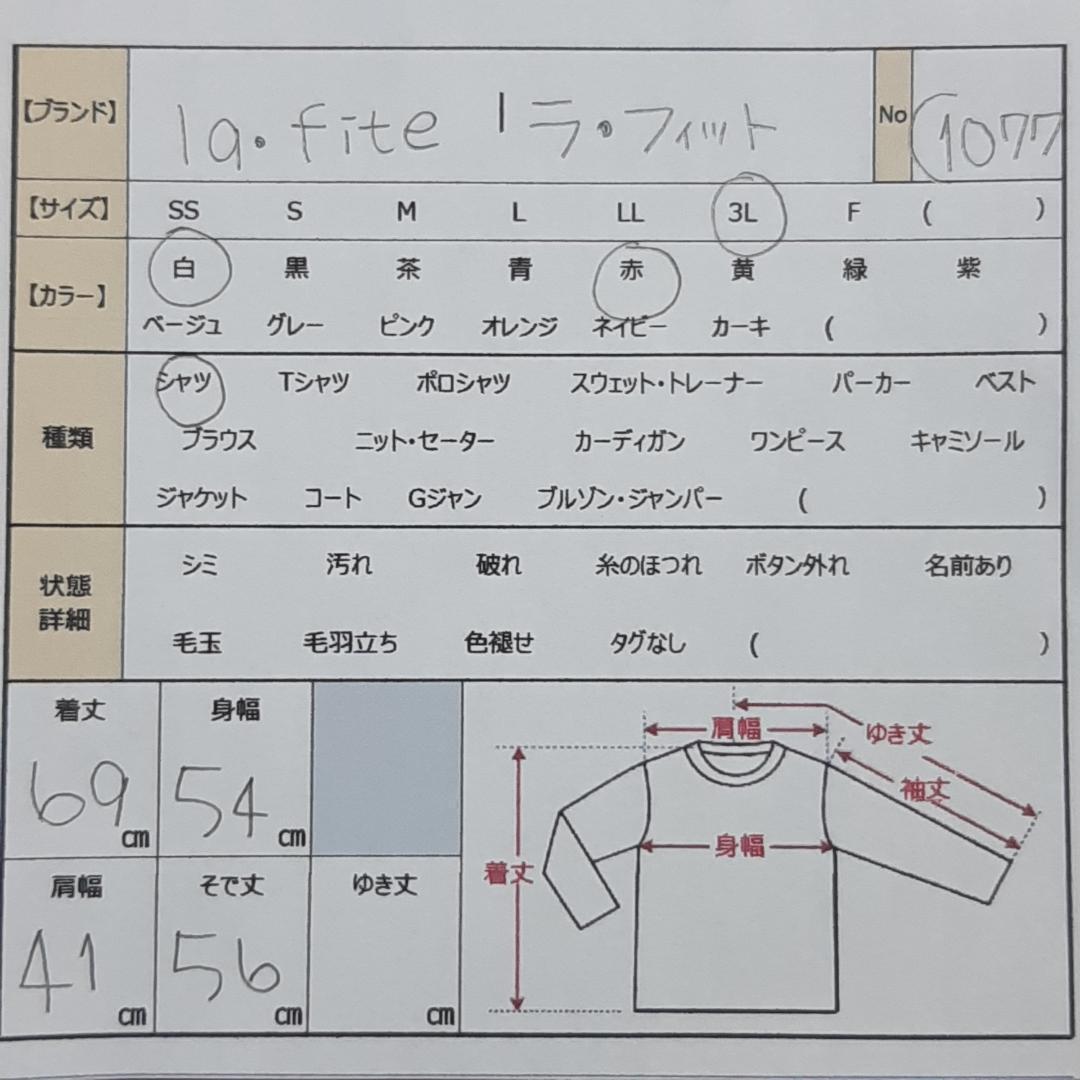 【ブランド】 la.fite |ラ・フィット No (1077
【サイズ】 SS S M L LL 3L F ( )
【カラー】 白 黒 茶 青 赤 黄 緑 紫
ベージュ グレー ピンク オレンジ ネイビー カーキ ( )
種類 シャツ Tシャツ ポロシャツ スウェット・トレーナー パーカー ベスト
ブラウス ニット・セーター カーディガン ワンピース キャミソール
ジャケット コート Gジャン ブルゾン・ジャンパー ( )
状態
詳細
シミ 汚れ 破れ 糸のほつれ ボタン外れ 名前あり
毛玉 毛羽立ち 色褪せ タグなし ( )
着丈 69 cm
身幅 54 cm
肩幅 41 cm
そで丈 56 cm
ゆき丈 cm
肩幅
ゆき丈
袖丈
身幅
着丈